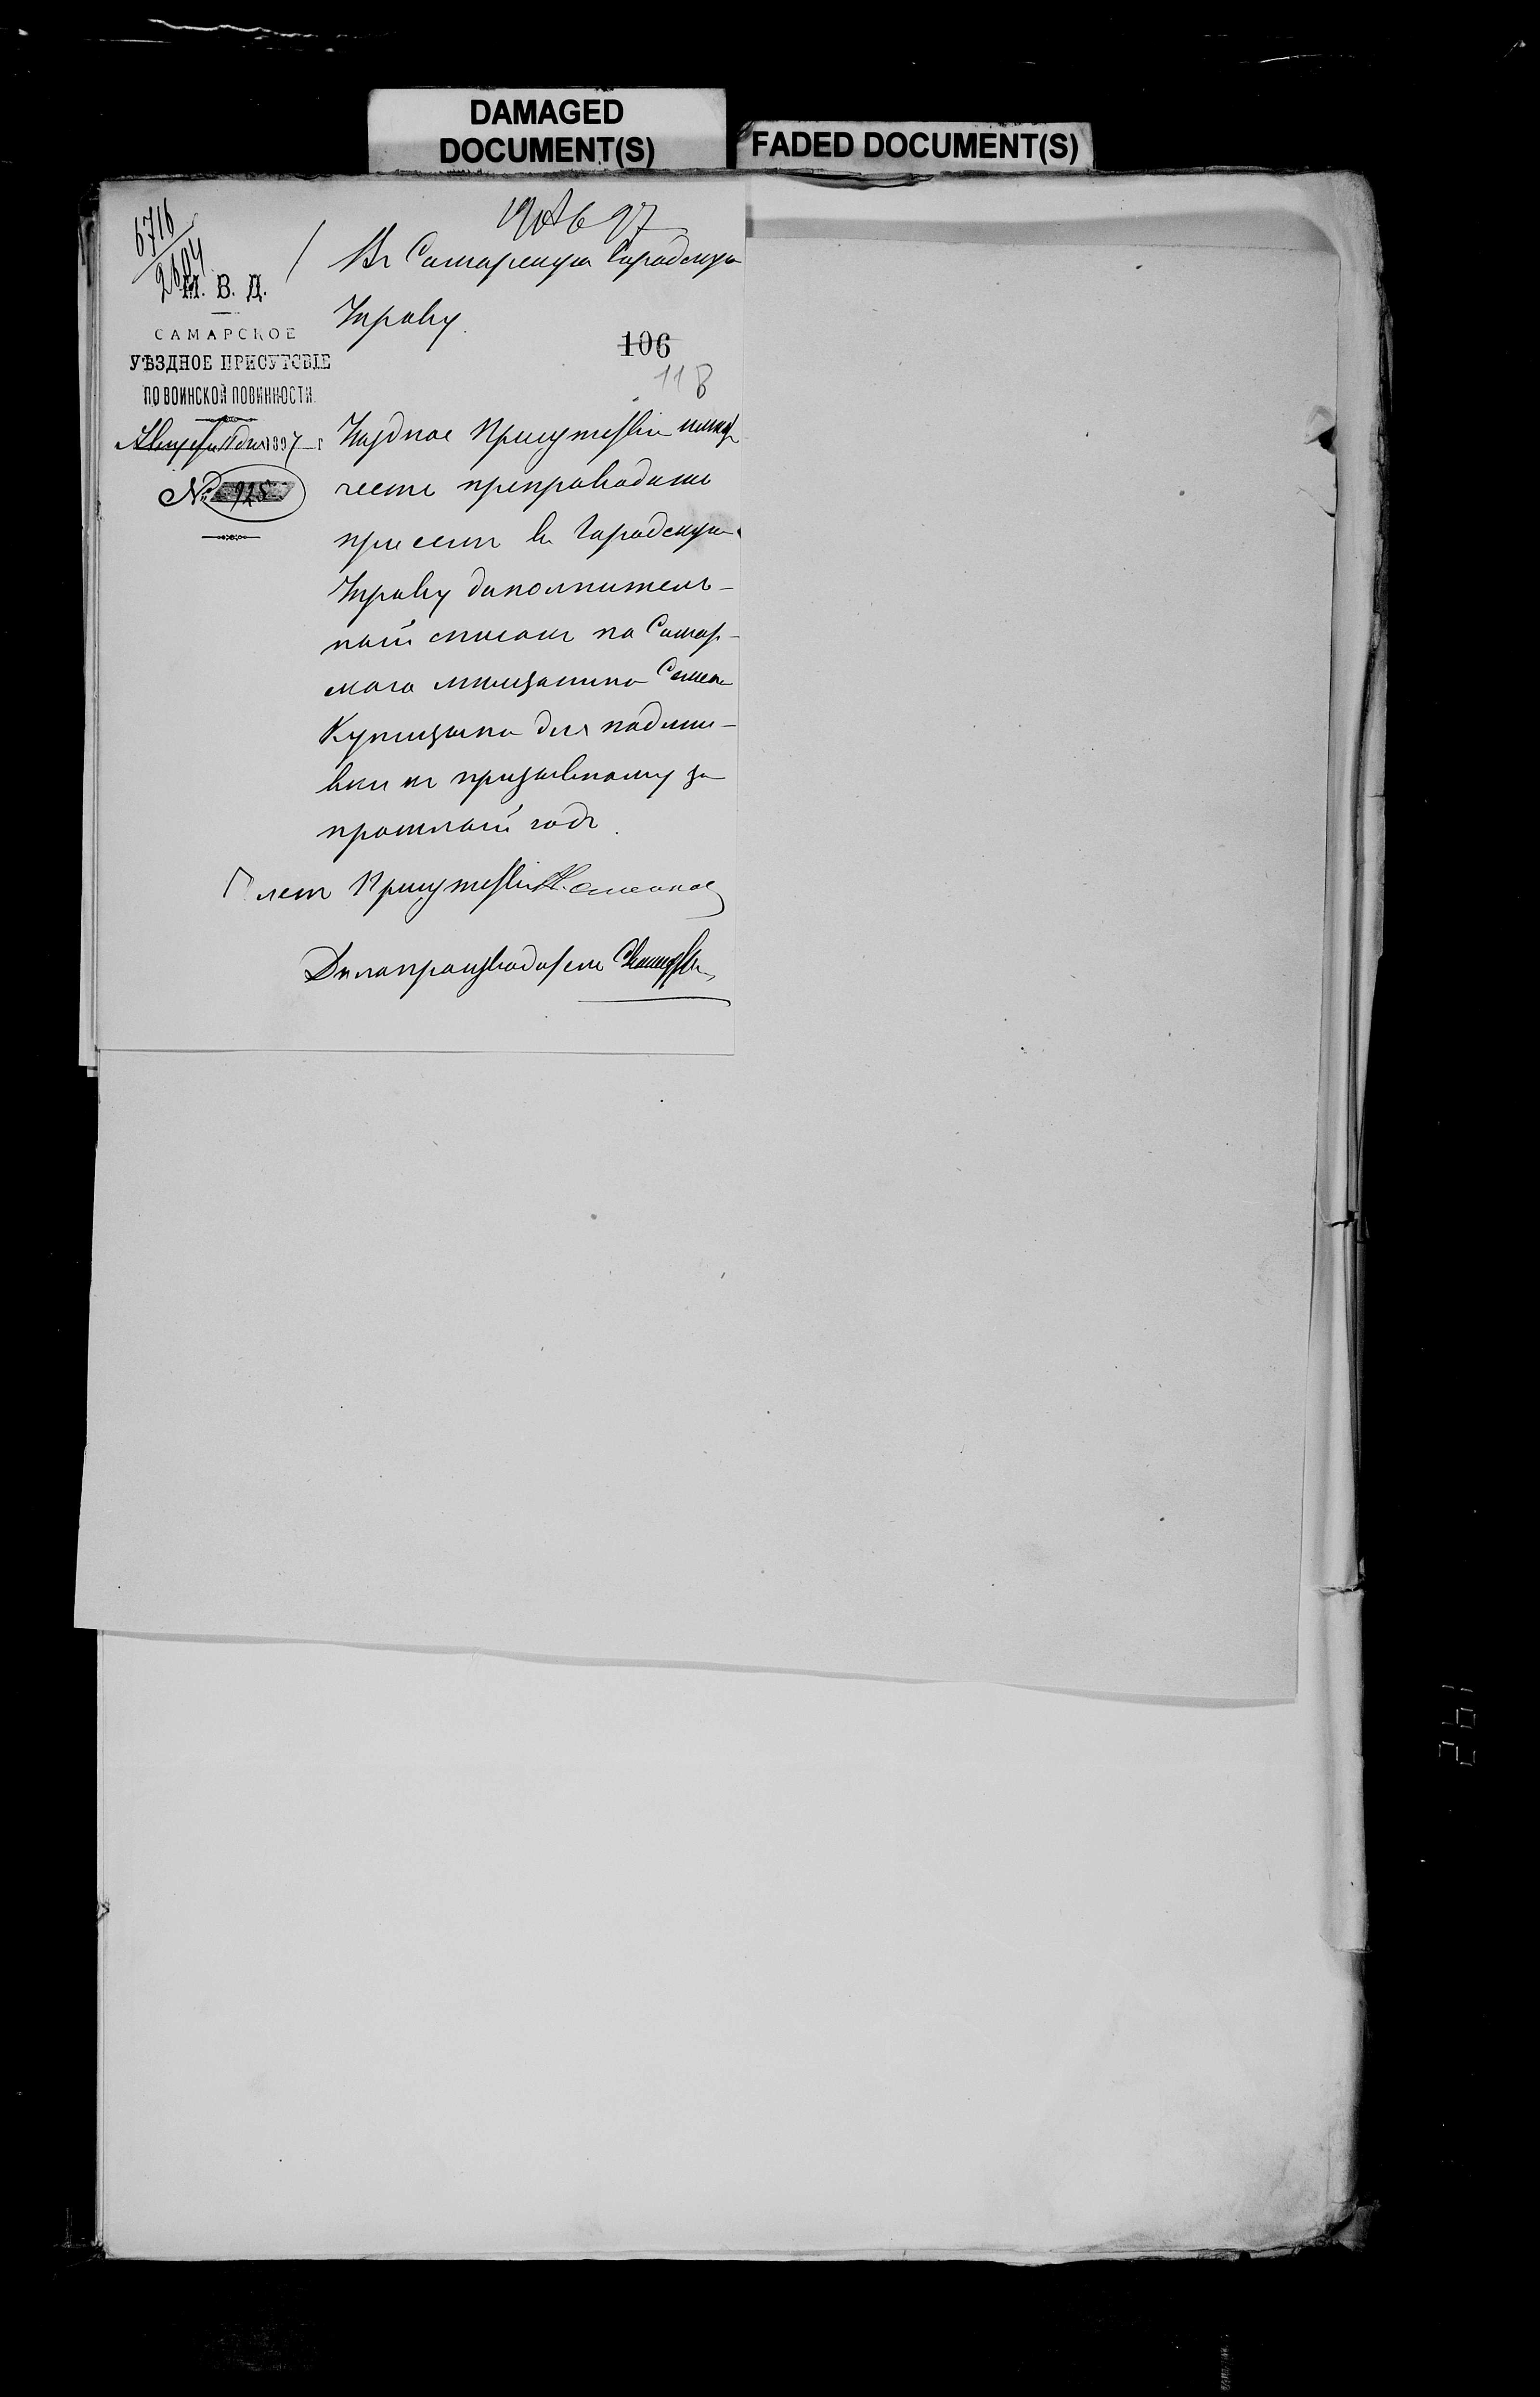 DAMAGED
DOCUMENT(S)
FADED DOCUMENT(S)
6716
2604
97
М. В. Д.
САМАРСКОЕ
УѢЗДНОЕ ПРИСУТСВІЕ
ПО ВОИНСКОЙ ПОВИННОСТИ.
Августа 11 дня 1897 г
№ 925
Въ Самарскую Городскую
Управу.
106
118
Уѣздное Присутствіе имѣетъ
честь препроводить
при семъ въ Городскую
Управу дополнитель-
ный списокъ на Самар-
скаго мѣщанина Семена
Купицына для подши-
вки къ призывному за
прошлый годъ.
Членъ Присутствія
Дѣлопроизводитель
192